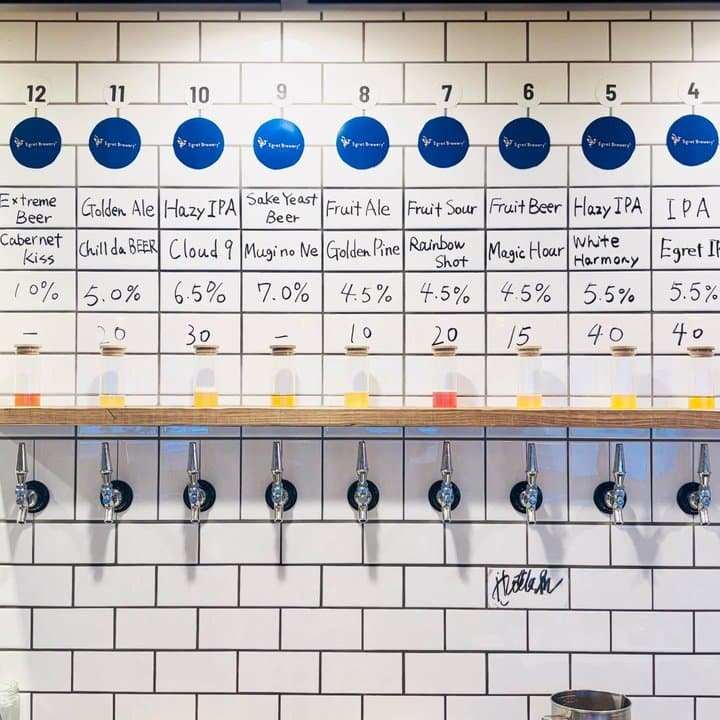 12 11 10 9 8 7 6 5 4
Egret Brewery Egret Brewery Egret Brewery Egret Brewery Egret Brewery Egret Brewery Egret Brewery Egret Brewery Egret Brewery
Extreme Beer Golden Ale Hazy IPA Sake Yeast Beer Fruit Ale Fruit Sour Fruit Beer Hazy IPA IPA
Cabernet Kiss Chill da BEER Cloud 9 Mugi no Ne Golden Pine Rainbow Shot Magic Hour White Harmony Egret
10% 5.0% 6.5% 7.0% 4.5% 4.5% 4.5% 5.5% 5.5%
- 20 30 - 10 20 15 40 40